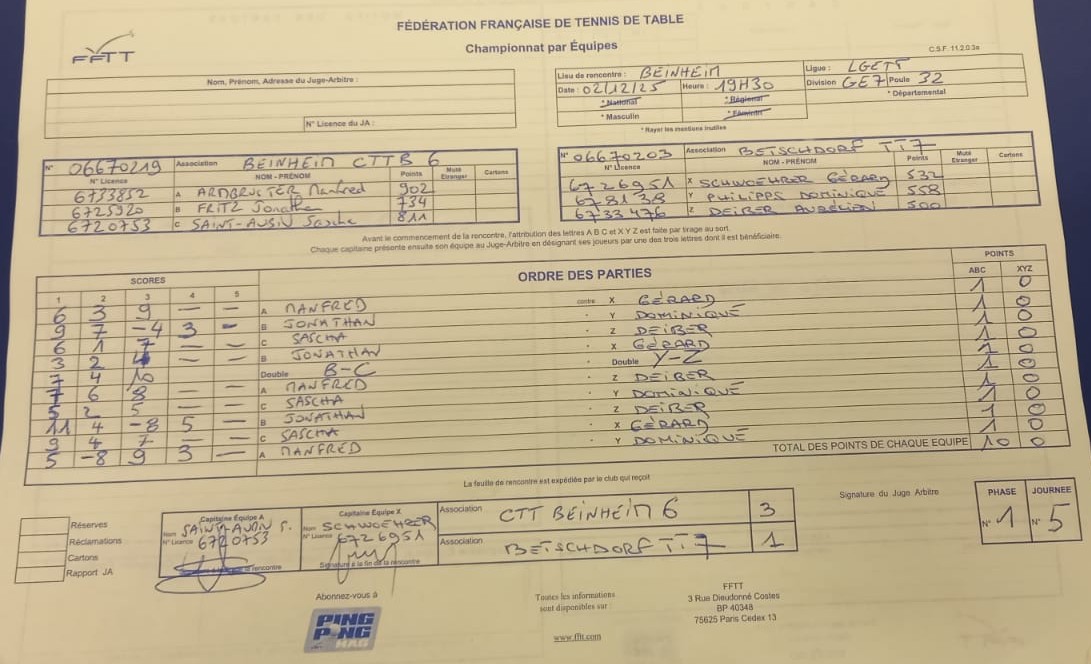 FÉDÉRATION FRANÇAISE DE TENNIS DE TABLE
FFTT
Championnat par Équipes
C.S.F. 11.2.0.3a
Nom, Prénom, Adresse du Juge-Arbitre :
N° Licence du JA :
Lieu de rencontre : BEINHEIM Ligue : LGETT
Date : 02/12/25 Heure : 19H30 Division GE7 Poule 32
* National * Régional * Départemental
* Masculin * Féminin
* Rayer les mentions inutiles
N° 06670219 Association BEINHEIM CTTB 6
N° Licence NOM - PRÉNOM Points Muté Etranger Cartons
6733852 A ARMBRUSTER Manfred 902
6725920 B FRITZ Jonathan 734
6720753 C SAINT-AUBIN Sascha 811
N° 06670203 Association BETSCHDORF TT7
N° Licence NOM - PRÉNOM Points Muté Etranger Cartons
6726951 X SCHWOEHRER GÉRARD 532
678138 Y PHILIPPS DOMINIQUE 558
6733476 Z DEIBER AURÉLIEN 500
Avant le commencement de la rencontre, l'attribution des lettres A B C et X Y Z est faite par tirage au sort.
Chaque capitaine présente ensuite son équipe au Juge-Arbitre en désignant ses joueurs par une des trois lettres dont il est bénéficiaire.
SCORES ORDRE DES PARTIES POINTS
1 2 3 4 5 ABC XYZ
6 3 9 — — A MANFRED contre X GÉRARD 1 0
9 7 -4 3 - B JONATHAN - Y DOMINIQUE 1 0
6 1 7 — — C SASCHA - Z DEIBER 1 0
3 2 4 — — B JONATHAN - X GÉRARD 1 0
7 4 10 Double B-C Double Y-Z 1 0
7 6 8 — — A MANFRED - Z DEIBER 1 0
5 2 5 — — C SASCHA - Y DOMINIQUE 1 0
11 4 -8 5 — B JONATHAN - Z DEIBER 1 0
9 4 7 — — C SASCHA - X GÉRARD 1 0
5 -8 9 3 — A MANFRED - Y DOMINIQUE 1 0
TOTAL DES POINTS DE CHAQUE EQUIPE 10 0
La feuille de rencontre est expédiée par le club qui reçoit
Réserves
Réclamations
Cartons
Rapport JA
Capitaine Équipe A
Nom SAINT-AUBIN S.
N° Licence 6720753
Capitaine Équipe X
Nom SCHWOEHRER
N° Licence 6726951
Signature à la fin de la rencontre
Association CTT BEINHEIM 6 3
Association BETSCHDORF TT7 1
Signature du Juge Arbitre
PHASE JOURNEE
N° 1 N° 5
Abonnez-vous à
PING PONG MAG
Toutes les informations
sont disponibles sur
www.fftt.com
FFTT
3 Rue Dieudonné Costes
BP 40348
75625 Paris Cedex 13